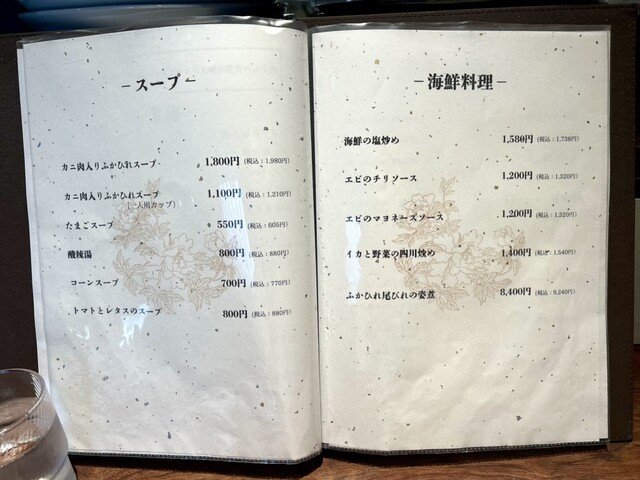 －スープ－
カニ肉入りふかひれスープ 1,800円 (税込：1,980円)
カニ肉入りふかひれスープ 1,100円 (税込：1,210円)
(一人用カップ)
たまごスープ 550円 (税込：605円)
酸辣湯 800円 (税込：880円)
コーンスープ 700円 (税込：770円)
トマトとレタスのスープ 800円 (税込：880円)
－海鮮料理－
海鮮の塩炒め 1,580円 (税込：1,738円)
エビのチリソース 1,200円 (税込：1,320円)
エビのマヨネーズソース 1,200円 (税込：1,320円)
イカと野菜の四川炒め 1,400円 (税込：1,540円)
ふかひれ尾びれの姿煮 8,400円 (税込：9,240円)